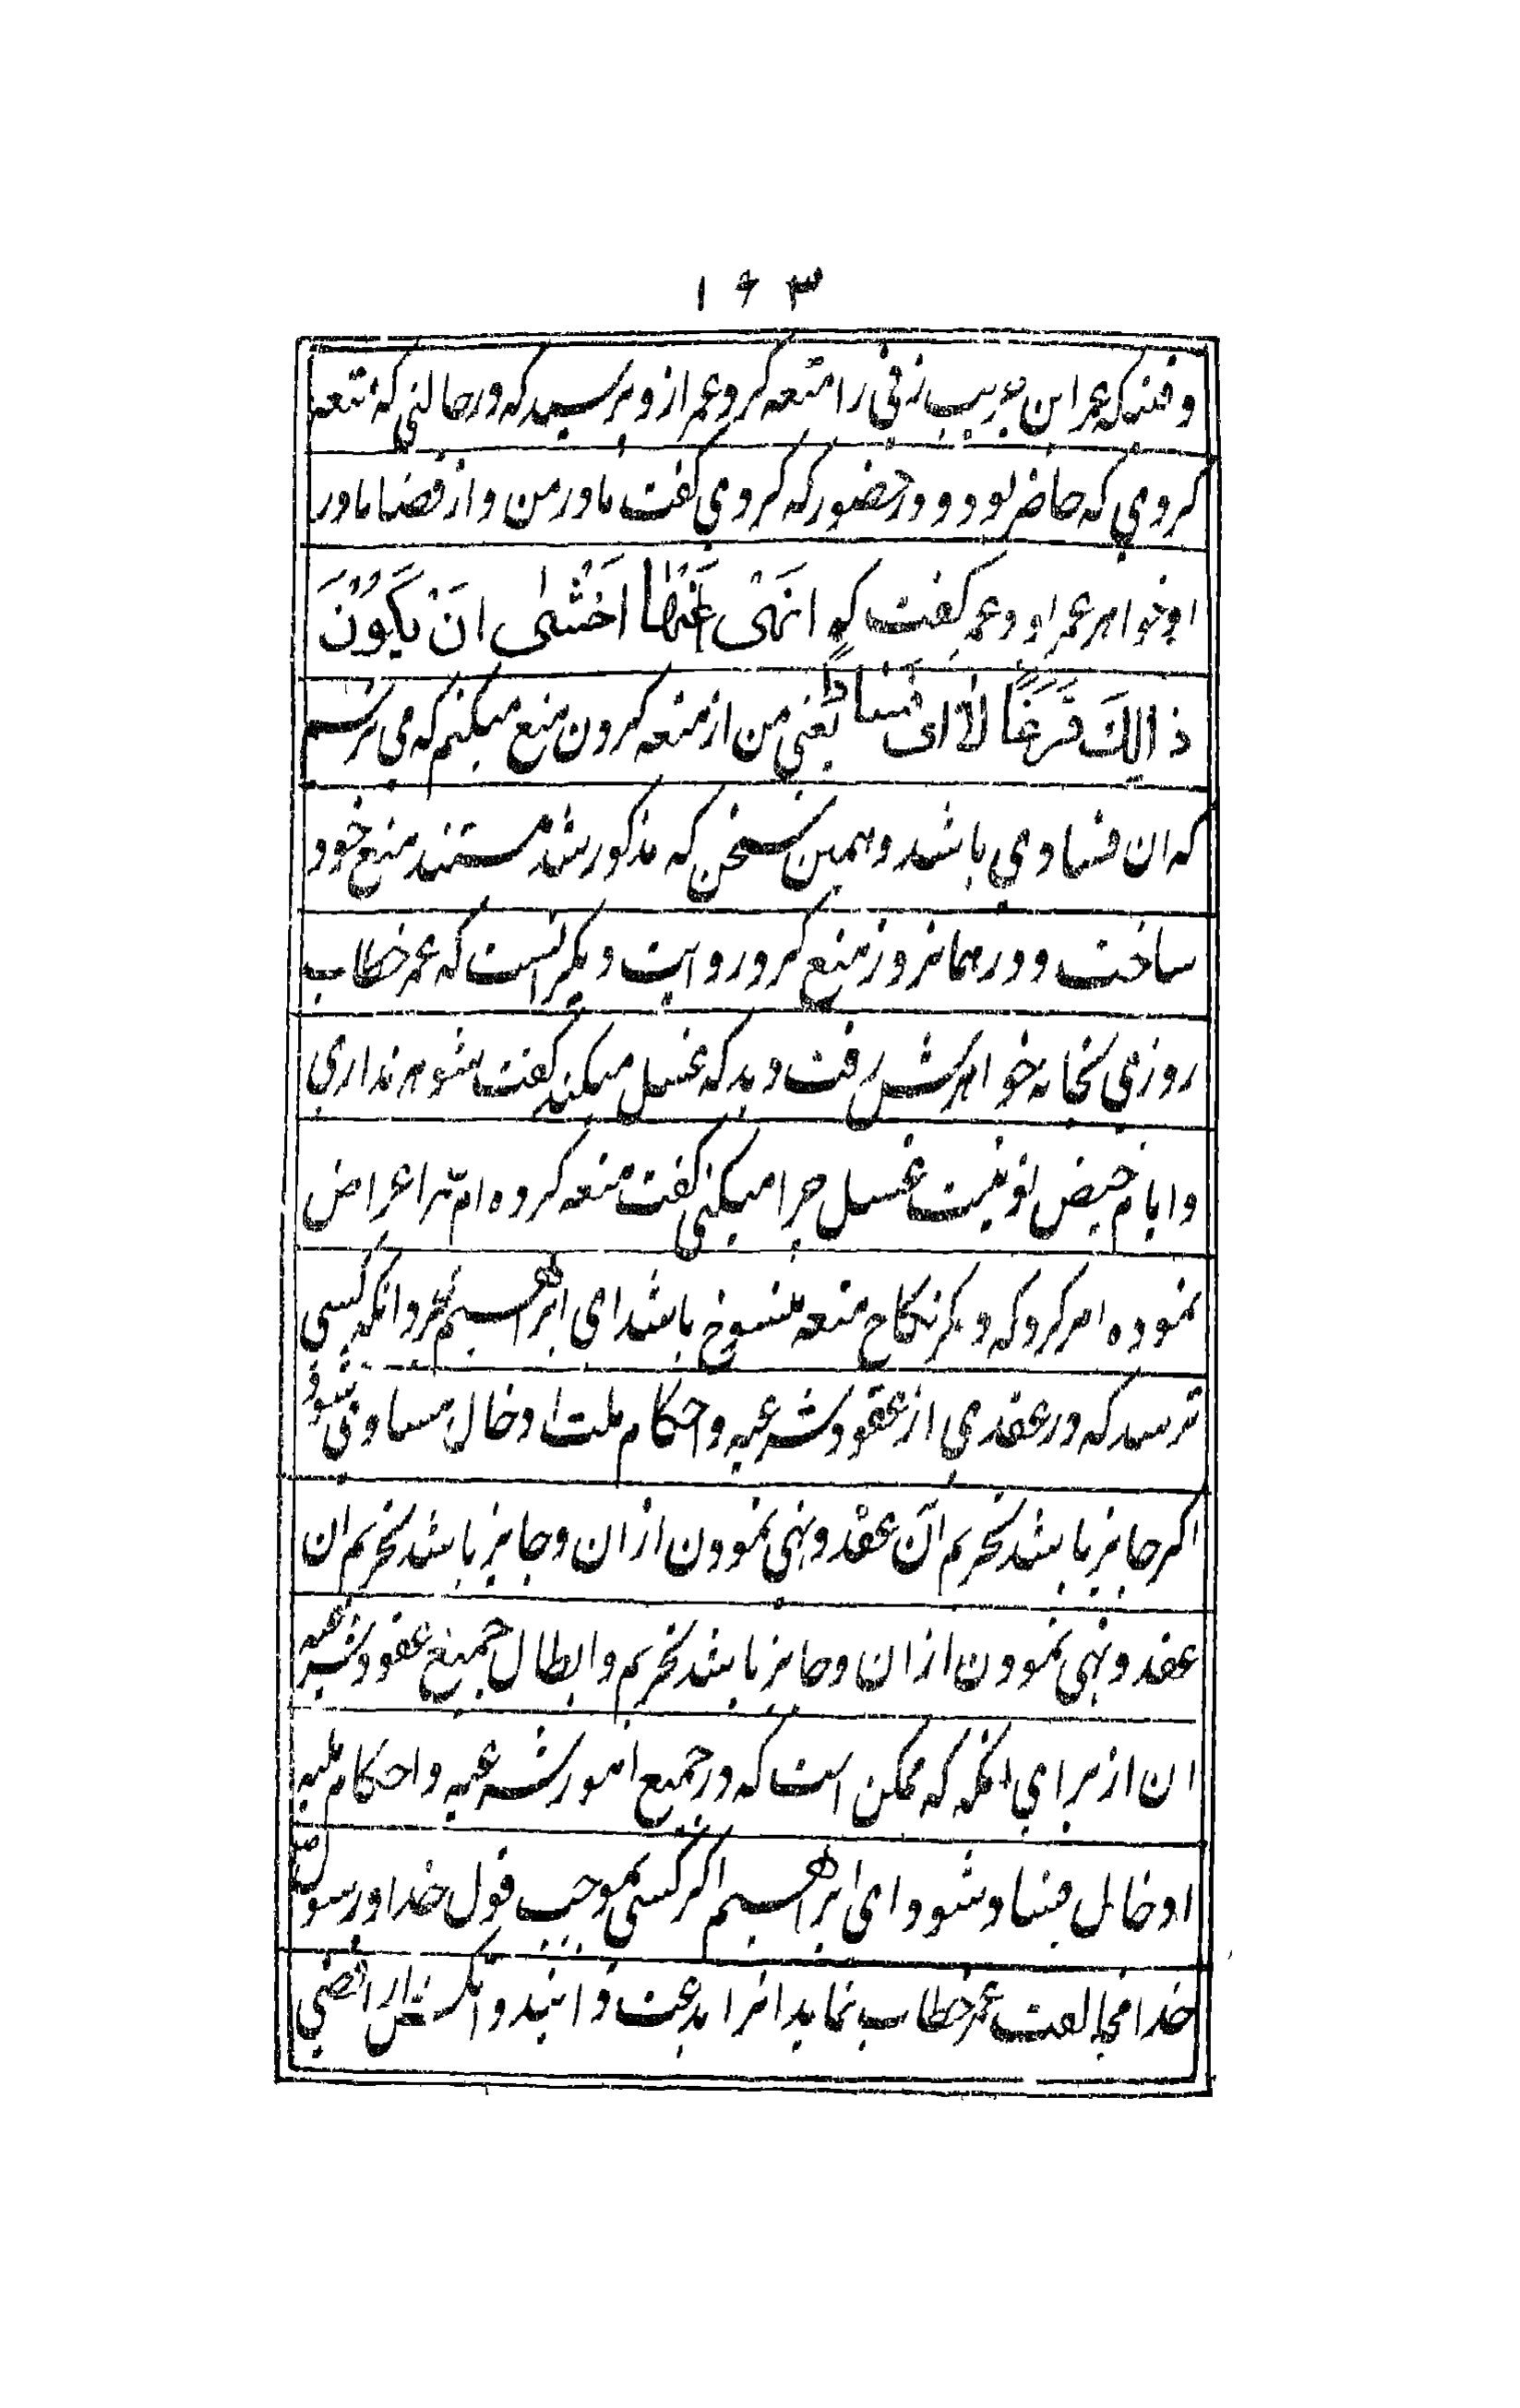 ۱۶۳
وقتیکه عمر ابن حریب زنی را متعه کرد عمر ازو پرسید که در حالتی که متعه
کردی که حاضر بود و در حضور که کردی گفت مادر من و از قضا مادر
او خواهر عمر بود عمر گفت که انهی عنها اخشی ان یکون
ذالک فرغا لا ای فسادا یعنی من از متعه کردن منع میکنم که می ترسم
که ان فسادی باشد و همین سخن که مذکور شد مستند منع خود
ساخت و در همانروز منع کرد روایت دیگر انست که عمر خطاب
روزی بخانه خواهرش رفت دید که غسل میکند گفت شوهر نداری
و ایام حیض تو نیست غسل چرا میکنی گفت متعه کرده ام مرا اعراض
نموده امر کرد که دیگر نکاح متعه منسوخ باشد ای ابراهیم بمجرد انکه کسی
ترسد که در عقدی از عقود شرعیه و احکام ملت ادخال فسادی شود
اگر جایز باشد تحریم آن عقد و نهی نمودن از ان و جایز باشد تحریم ان
عقد و نهی نمودن از ان و جایز باشد تحریم و ابطال جمیع عقود شرعیه
ان از برای انکه که ممکن است که در جمیع امور شرعیه و احکام ملیه
ادخال فساد شود ای ابراهیم اگر کسی بموجب قول خدا و رسول
خدا مخالفت عمر خطاب نماید انرا بدعت دانند و انکس را رافضی